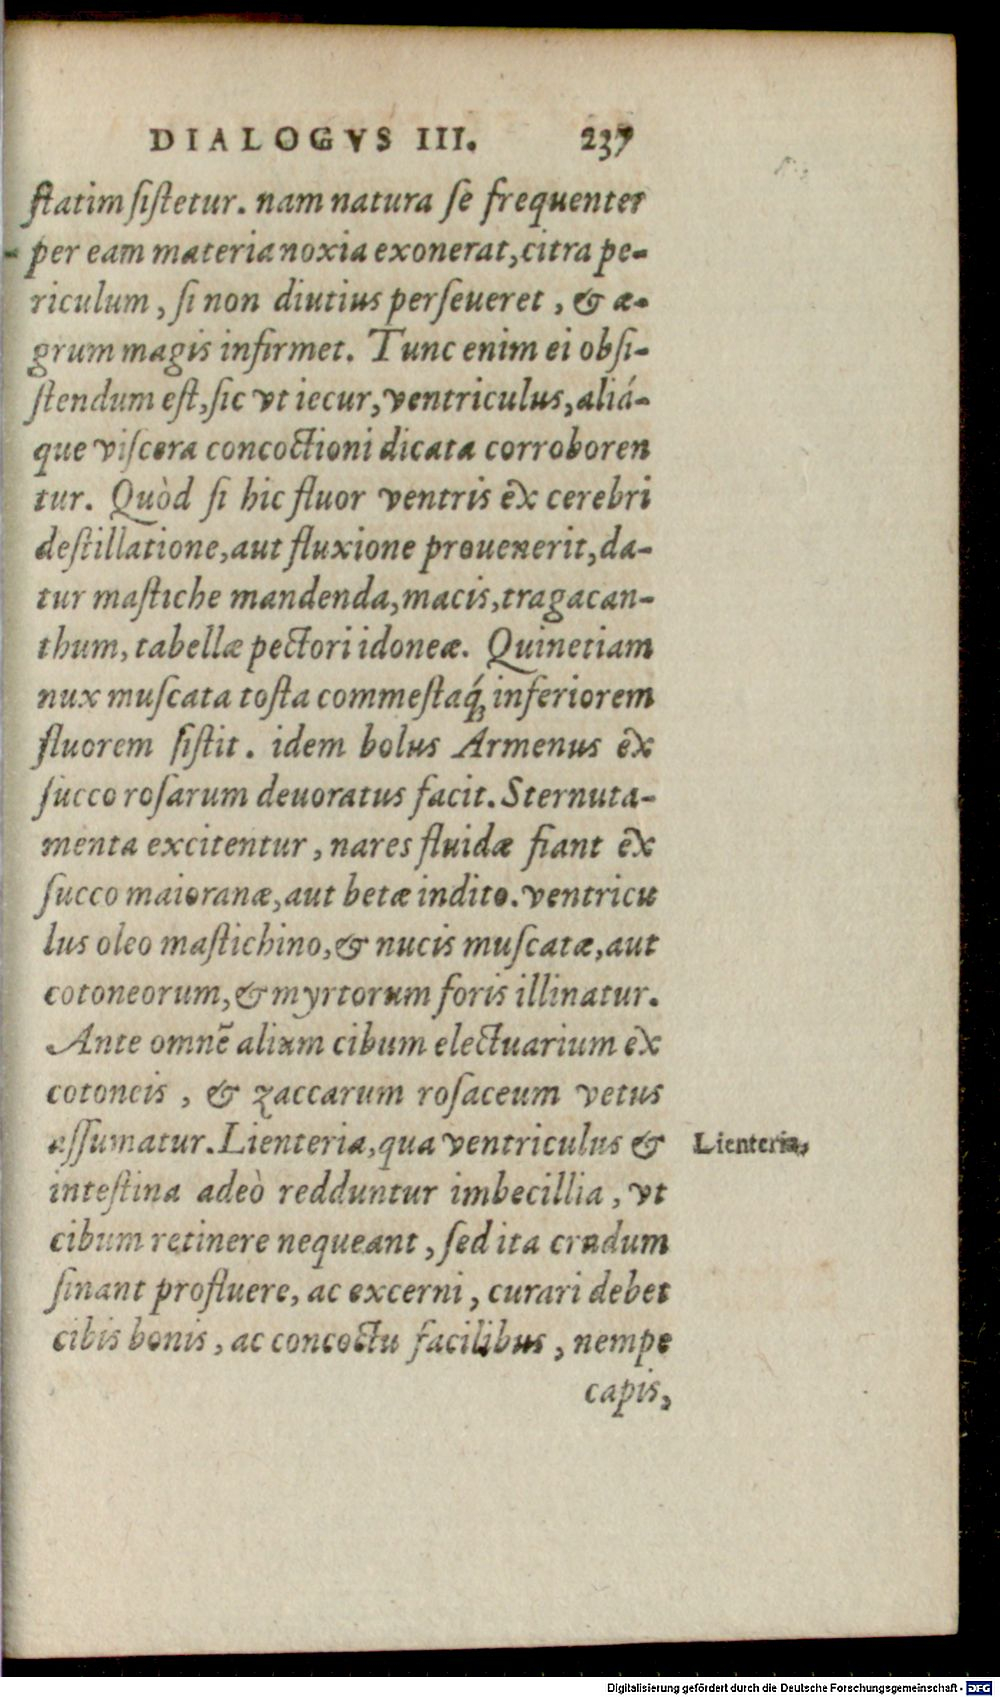 DIALOGVS III. 237
ſtatim ſiſtetur. nam natura ſe frequenter
per eam materia noxia exonerat, citra pe-
riculum, ſi non diutius perſeueret, & æ-
grum magis infirmet. Tunc enim ei obſi-
ſtendum eſt, ſic vt iecur, ventriculus, aliá-
que viſcera concoctioni dicata corroboren
tur. Quòd ſi hic fluor ventris ex cerebri
deſtillatione, aut fluxione prouenerit, da-
tur maſtiche mandenda, macis, tragacan-
thum, tabellæ pectori idoneæ. Quinetiam
nux muſcata toſta commeſtaq́; inferiorem
fluorem ſiſtit. idem bolus Armenus ex
ſucco roſarum deuoratus facit. Sternuta-
menta excitentur, nares fluidæ fiant ex
ſucco maioranæ, aut betæ indito. ventricu
lus oleo maſtichino, & nucis muſcatæ, aut
cotoneorum, & myrtorum foris illinatur.
Ante omnẽ alium cibum electuarium ex
cotoneis, & zaccarum roſaceum vetus
aſſumatur. Lienteria, qua ventriculus &
Lienteria,
inteſtina adeò redduntur imbecillia, vt
cibum retinere nequeant, ſed ita crudum
ſinant profluere, ac excerni, curari debet
cibis bonis, ac concoctu facilibus, nempe
capis,
Digitalisierung gefördert durch die Deutsche Forschungsgemeinschaft - DFG